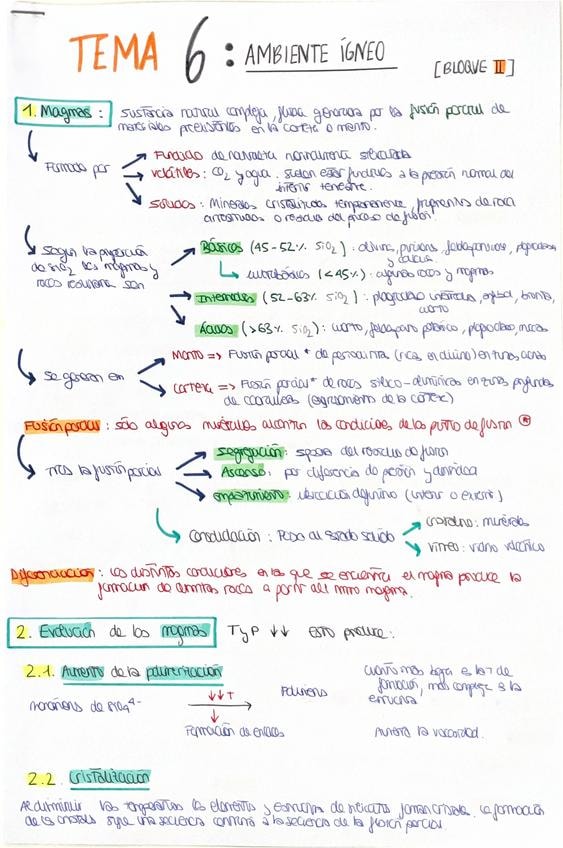 TEMA 6: AMBIENTE ÍGNEO
[BLOQUE II]
1. Magmas: sustancia natural compleja, fluida generada por la fusión parcial de
materiales preexistentes en la corteza o manto.
Formado por
Fundido de naturaleza normalmente silicatada
volátiles: CO2 y agua. suelen estar fundidos a la presión normal del
interior terrestre.
Sólidos: Minerales cristalizados tempranamente, fragmentos de roca
arrastrados o residuo del proceso de fusión
según la proporción
de SiO2 los magmas y
rocas resultantes son
Básicos (45-52% SiO2): olivino, piroxeno, plagioclasa
ultrabásicos (<45%): algunas rocas y magmas
Intermedios (52-63% SiO2): plagioclasa, anfibol, biotita,
cuarzo
Ácidos (>63% SiO2): cuarzo, feldespato potásico, plagioclasa, micas
se generan en
Manto => Fusión parcial * de peridotita (rica en olivino) en zonas
corteza => Fusión parcial * de rocas silico-alumínicas en zonas profundas
de cordilleras (engrosamiento de la corteza)
Fusión parcial: sólo algunos minerales alcanzan las condiciones de punto de fusión *
Tras la fusión parcial
segregación: separa del residuo de fusión
Ascenso: por diferencia de presión y densidad
emplazamiento: ubicación definitiva (interior o exterior)
Consolidación: Paso al estado sólido
cristalino: minerales
vítreo: vidrio volcánico
Diferenciación: Las distintas condiciones en las que se encuentra el magma produce la
formación de distintas rocas a partir del mismo magma.
2. Evolución de los magmas TyP ↓↓ esto produce:
2.1. Aumento de la polimerización
monómeros de SiO4 4-
↓↓↓T
Formación de enlaces
Polímeros
cuanto más baja es la T de
formación, más compleja es la
estructura
Aumenta la viscosidad.
2.2. cristalización
Al disminuir las temperaturas los elementos y estructuras de silicatos forman cristales. La formación
de los cristales sigue una secuencia contraria a la secuencia de la fusión parcial.